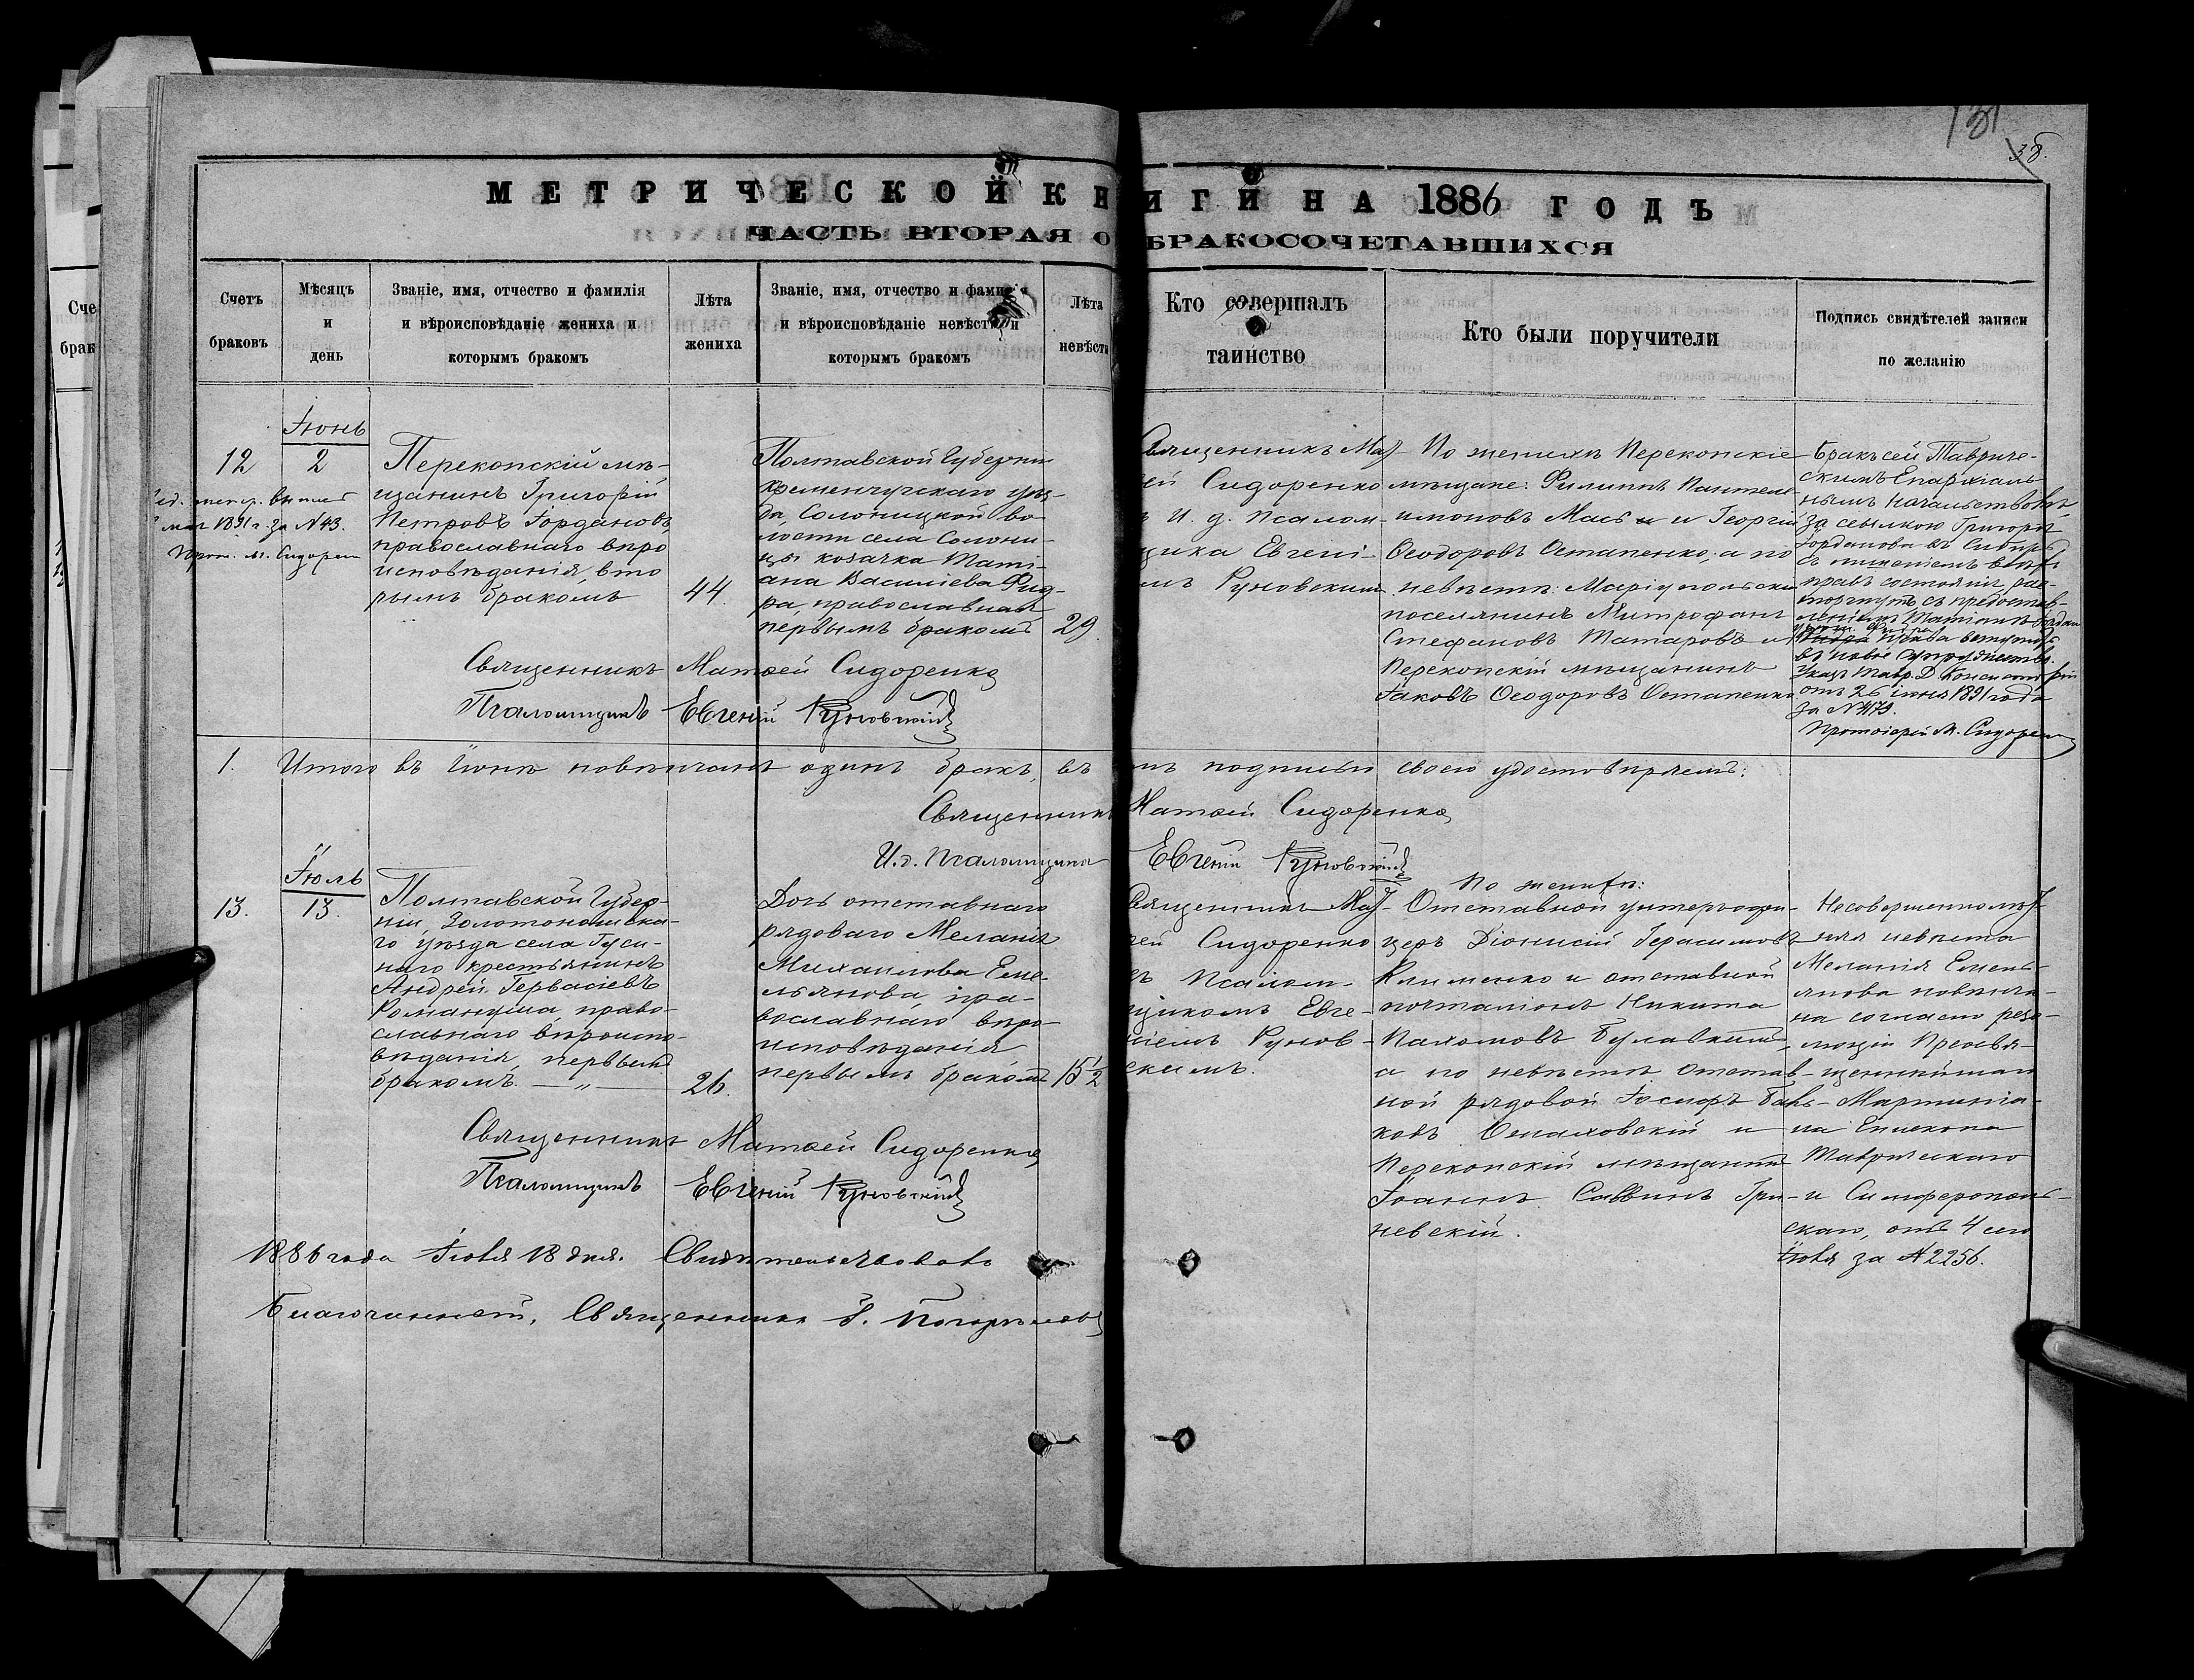 131
38.
МЕТРИЧЕСКОЙ КНИГИ НА 1886 ГОДЪ
ЧАСТЬ ВТОРАЯ О БРАКОСОЧЕТАВШИХСЯ
Счетъ
браковъ
Мѣсяцъ
и
день
Званіе, имя, отчество и фамилія
и вѣроисповѣданіе жениха и
которымъ бракомъ
Лѣта
жениха
Званіе, имя, отчество и фамилія
и вѣроисповѣданіе невѣсты и
которымъ бракомъ
Лѣта
невѣсты
Кто совершалъ
таинство
Кто были поручители
Подпись свидѣтелей записи
по желанію
Сче
брак
12
Іюнь
2
1891 г. за № 43.
Прот. М. Сидорен
Перекопскій мѣ-
щанинъ Григорій
Петровъ Іордановъ,
православнаго вѣро
исповѣданія, вто
рымъ бракомъ
44.
Полтавской Губерніи
Кременчугскаго уѣз-
да, Солоницкой во-
лости села Солони-
цы козачка Таті-
ана Василіева
православная
первымъ бракомъ
29.
Священникъ Мат-
ѳей Сидоренко
И. д. Псалом-
щика Евгені-
емъ Руновскимъ
По женихѣ Перекопскіе
мѣщане: Филиппъ Пантеле-
имоновъ Мась и Георгій
Ѳеодоровъ Остапенко; а по
невѣстѣ: Маріупольскій
поселянинъ Митрофанъ
Стефановъ Татаровъ и
Перекопскій мѣщанинъ
Іаковъ Ѳеодоровъ Остапенко
Бракъ сей Тавриче-
скимъ Епархіаль
нымъ Начальствомъ
за ссылкою Григорія
Іорданова въ Сибирь
съ лишеніемъ всѣхъ
правъ состоянія, рас-
торгнутъ съ предостав-
леніемъ Татіанѣ
права вступить
въ новое супружество.
Указъ Тавр. Д. Консисторіи
отъ 26 іюня 1891 года
за № 4179.
Протоіерей М. Сидоренко
Священникъ Матѳей Сидоренко
Псаломщикъ Евгеній Руновскій
1. Итого въ Іюнѣ повѣнчанъ одинъ бракъ, въ чемъ подписью своею удостовѣряемъ:
Священникъ Матѳей Сидоренко
И. д. Псаломщика Евгеній Руновскій
13.
Іюль
13.
Полтавской Губер-
ніи, Золотоношска-
го уѣзда села Гуси-
наго крестьянинъ
Андрей Гервасіевъ
Романуша, право-
славнаго вѣроиспо-
вѣданія, первымъ
бракомъ. — „ —
26.
Дочь отставнаго
рядоваго Меланія
Михаилова Еме-
льянова, пра-
вославнаго вѣро-
исповѣданія
первымъ бракомъ
15½
Священникъ Мат-
ѳей Сидоренко
съ Псалом-
щикомъ Евге-
ніемъ Рунов-
скимъ.
По женихѣ:
Отставной унтеръ-офи-
церъ Діонисій Герасимовъ
Клименко и отставной
почталіонъ Никита
Пахомовъ Булавкинъ,
а по невѣстѣ отстав-
ной рядовой Іосифъ
Осмаховскій и
Перекопскій мѣщанинъ
Іоаннъ Саввинъ Гри-
невскій.
Несовершеннолѣт-
няя невѣста
Меланія Емель-
янова повѣнча-
на согласно резо-
люціи Преосвя-
щеннѣйшаго
Мартиніа-
на Епископа
Таврическаго
и Симферополь-
скаго, отъ 4 сего
Іюля за № 2256.
Священникъ Матѳей Сидоренко
Псаломщикъ Евгеній Руновскій
1886 года Іюля 18 дня. Свидѣтельствовалъ
Благочинный, Священникъ